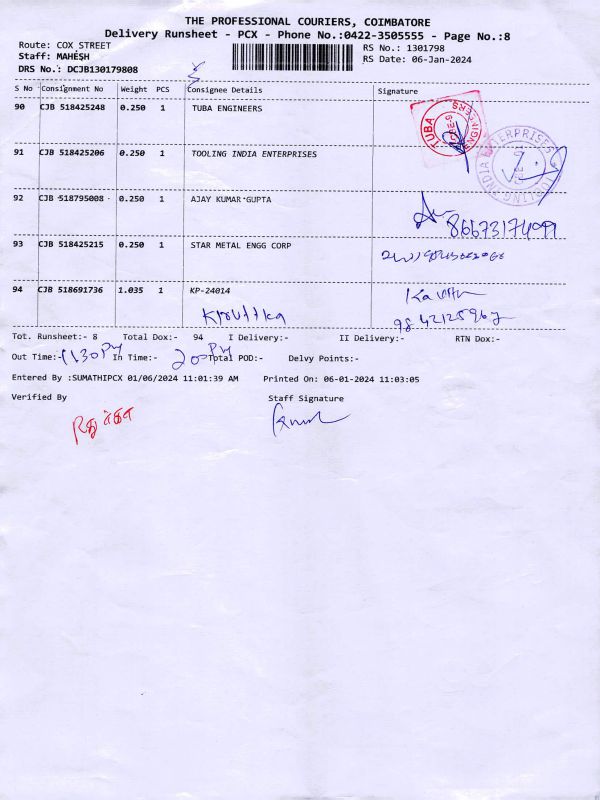 THE PROFESSIONAL COURIERS, COIMBATORE
Delivery Runsheet - PCX - Phone No.:0422-3505555 - Page No.:8
Route: COX STREET
RS No.: 1301798
Staff: MAHESH
RS Date: 06-Jan-2024
DRS No.: DCJB130179808
S No Consignment No Weight PCS Consignee Details Signature
90 CJB 518425248 0.250 1 TUBA ENGINEERS
TUBA ENGINEERS
91 CJB 518425206 0.250 1 TOOLING INDIA ENTERPRISES
TOOLING INDIA ENTERPRISES
92 CJB 518795008 0.250 1 AJAY KUMAR GUPTA
8667317409
93 CJB 518425215 0.250 1 STAR METAL ENGG CORP
94 CJB 518691736 1.035 1 KP-24014
Kruttika
9842125967
Tot. Runsheet:- 8 Total Dox:- 94 I Delivery:- II Delivery:- RTN Dox:-
Out Time:- 11.30 PM In Time:- 20 PM Total POD:- Delvy Points:-
Entered By :SUMATHIPCX 01/06/2024 11:01:39 AM Printed On: 06-01-2024 11:03:05
Verified By Staff Signature